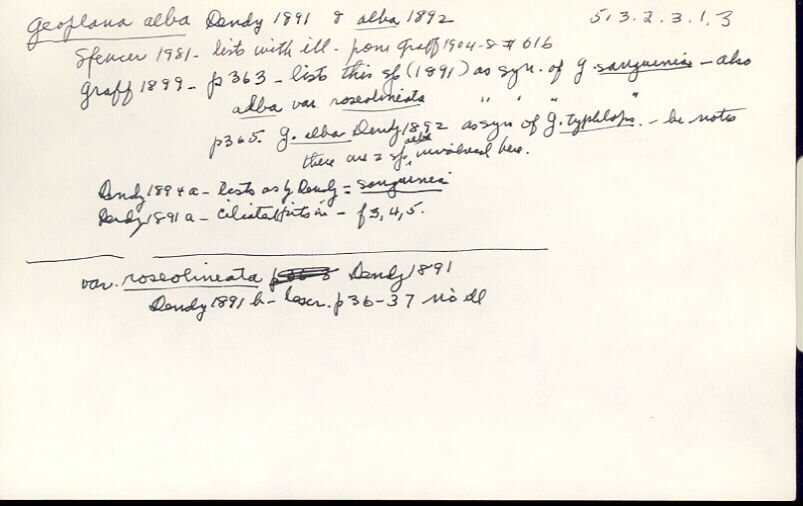 Geoplana alba Dendy 1891 & alba 1892 5.3.2.3.1.3
Spencer 1981 - lists with ill. from Graff 1904-8 # 616
Graff 1899 - p 363 - lists this sp (1891) as syn. of G. sanguinea - also
alba var. roseolineata " " " "
p 365. G. alba Dendy 1892 as syn of G. typhlops. - he notes
there are 2 sp. alba involved here.
Dendy 1894a - lists as G Dendy = sanguinea
Dendy 1891a - ciliated pits in - f 3, 4, 5.
var. roseolineata Dendy 1891
Dendy 1891 b - descr. p 36-37 no ill